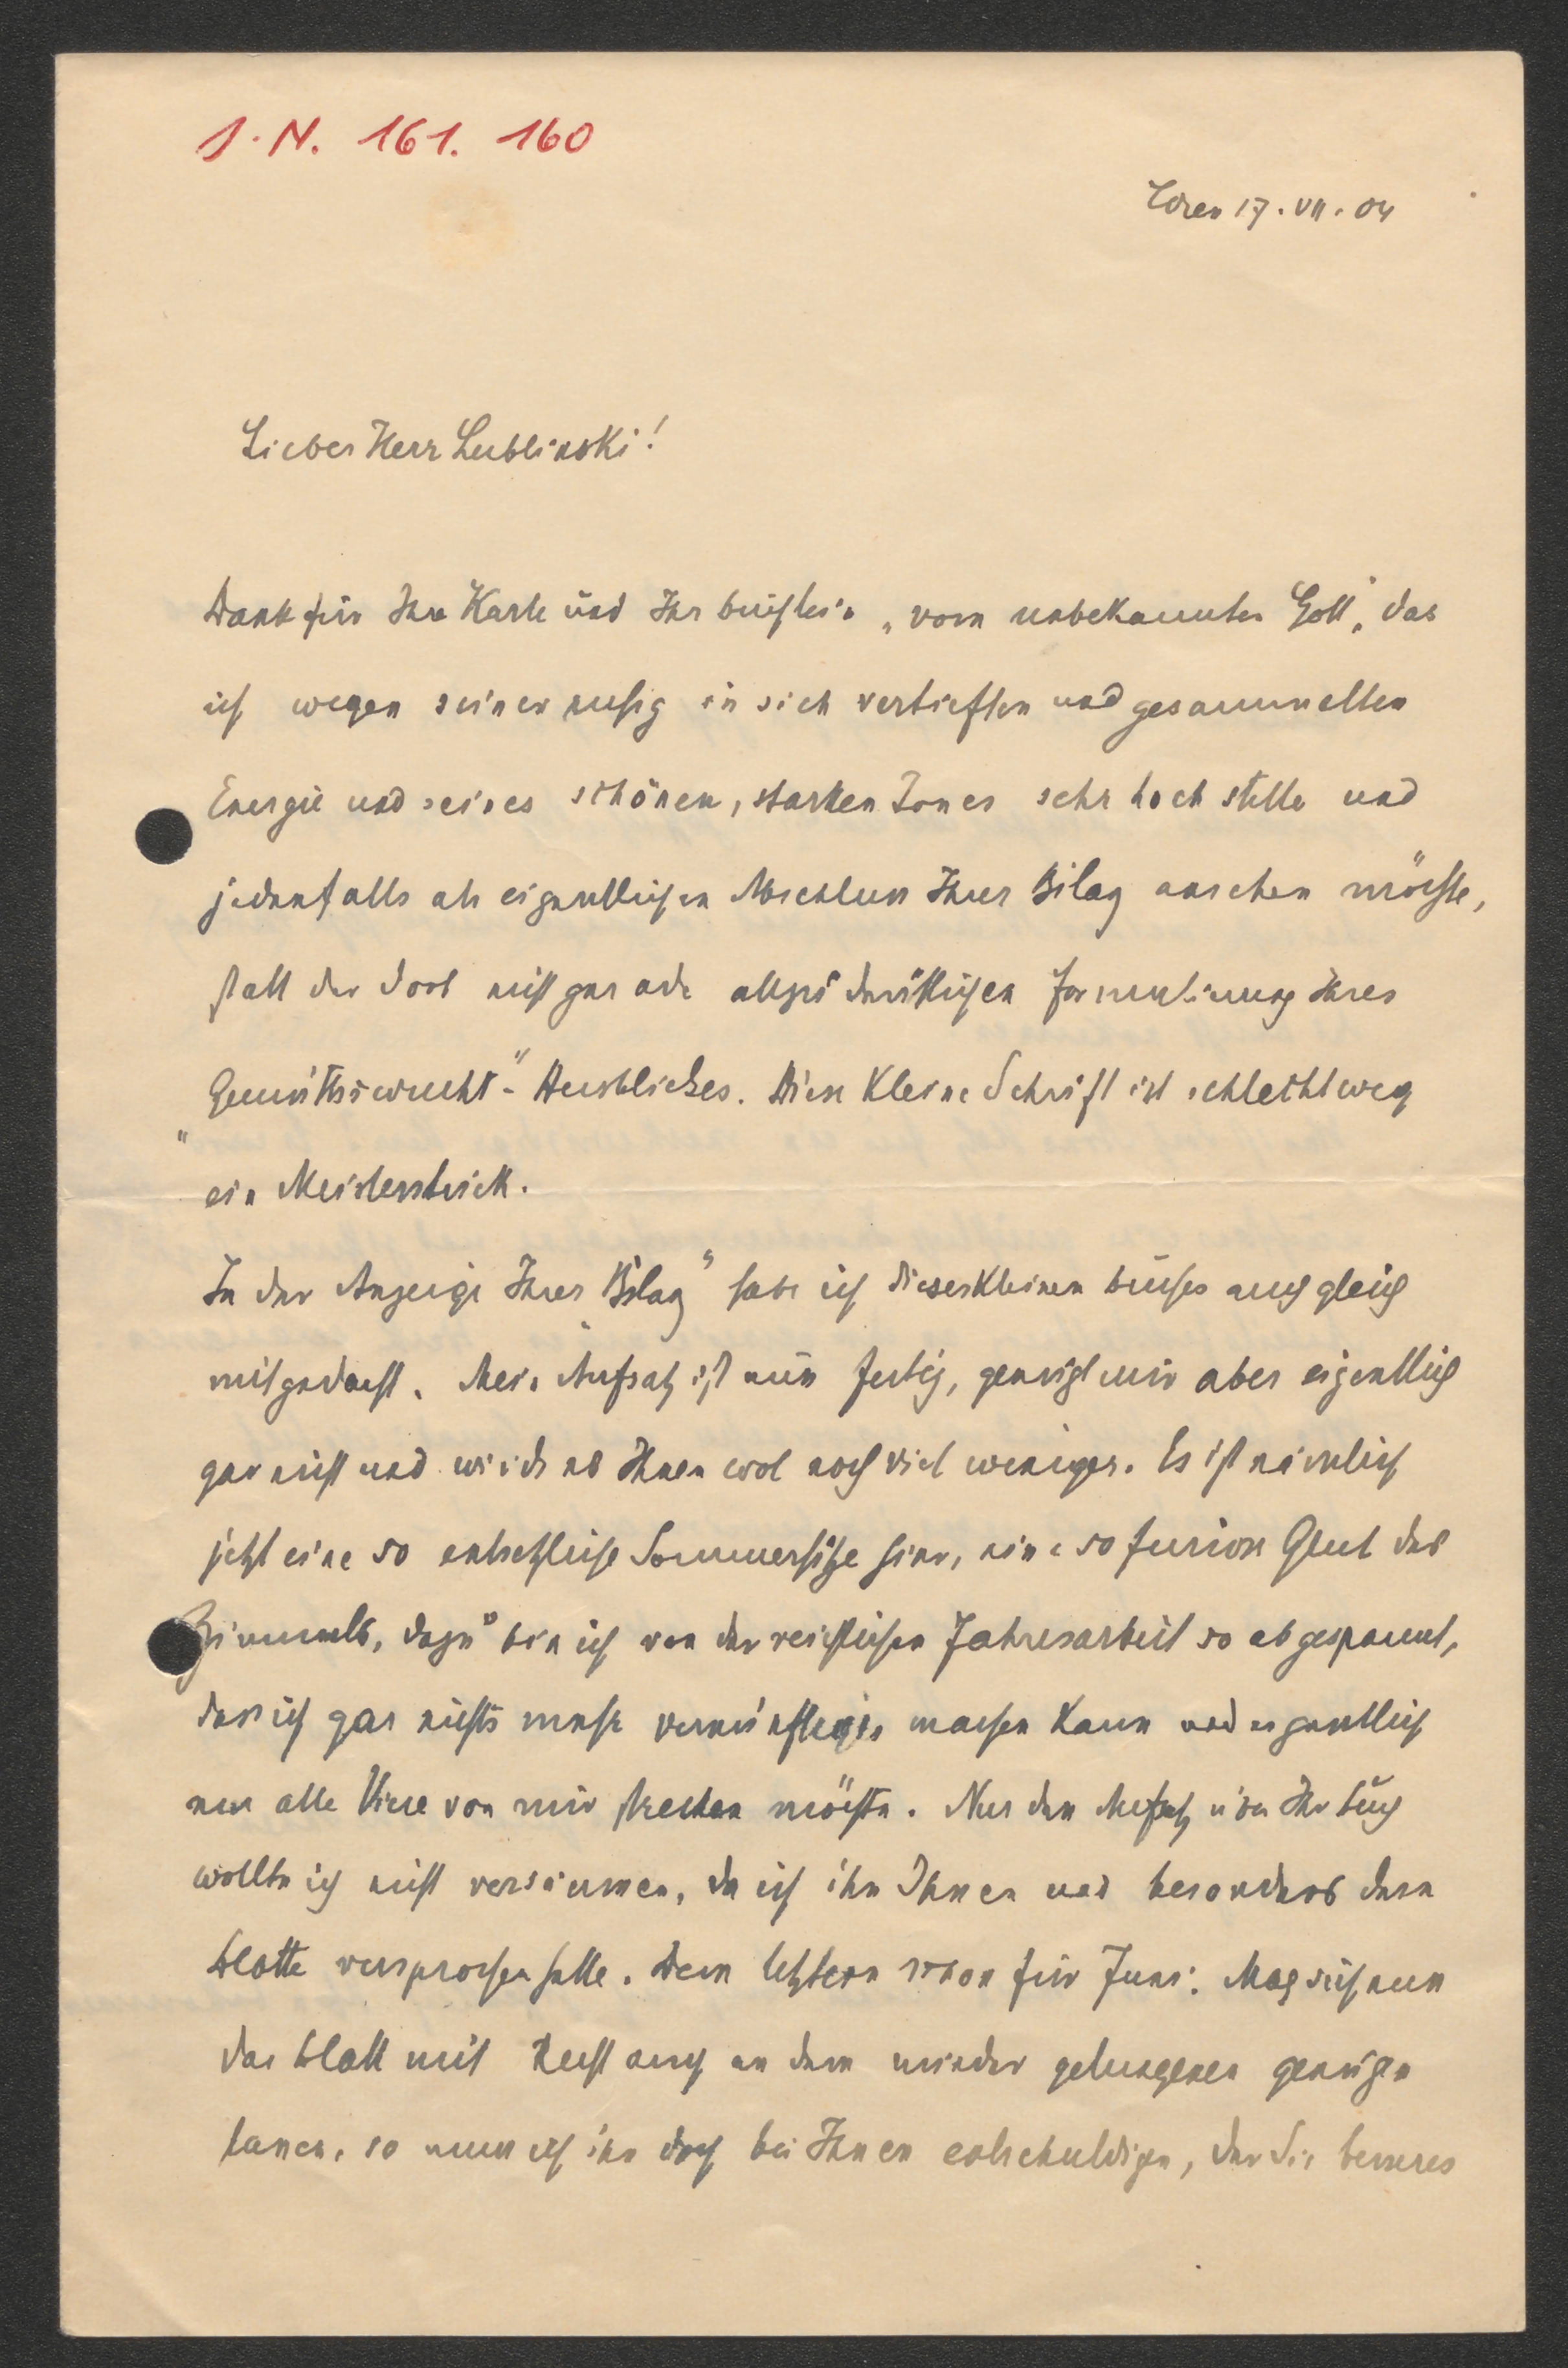 J. N. 161. 160
Wien 17. VII. 04
Lieber Herr Lublinski!
Dank für Ihre Karte und Ihr büchlein „vom unbekannten Gott", das
ich wegen seiner ruhig in sich vertieften und gesammelten
Energie und seines schönen, starken Tones sehr hoch stelle und
jedenfalls als eigentlichen Abschluss Ihrer Bilanz ansehen möchte,
statt der dort nicht gerade allzu deutlichen Formulierung Ihres
„Gemüthswucht"-Ausblickes. Diese kleine Schrift ist schlechtweg
ein Meisterstück.
In der Anzeige Ihrer „Bilanz" habe ich dieses kleinen buches auch gleich
mitgedacht. Mein Aufsatz ist nun fertig, genügt mir aber eigentlich
gar nicht und wird es Ihnen wol noch viel weniger. Es ist nämlich
jetzt eine so entsetzliche Sommerhitze hier, eine so furiose Glut des
Himmels, dazu bin ich von der reichlichen Jahresarbeit so abgespannt,
dass ich gar nichts mehr vernünftiges machen kann und eigentlich
nur alle Viere von mir strecken möchte. Nur den Aufsatz über Ihr buch
wollte ich nicht versäumen, da ich ihn Ihnen und besonders dem
blatte versprochen hatte. Dem letztern schon für Juni. Mag sich nun
das blatt mit Recht auch an dem minder gelungenen genügen
lassen, so muss ich ihn doch bei Ihnen entschuldigen, der Sie besseres